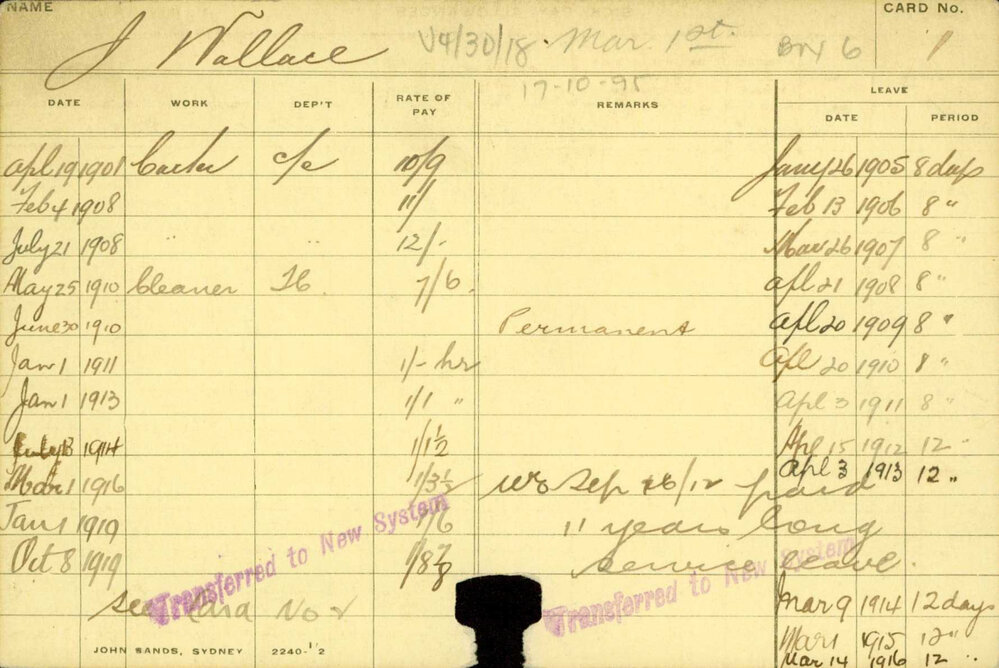 NAME J Wallace V4/30/18 Mar. 1st. CARD No. 1
17-10-95
DATE WORK DEP'T RATE OF PAY REMARKS LEAVE
DATE PERIOD
Apl 19 1901 Carter c/c 10/9 Jany 26 1905 8 days
Feb 4 1908 11/ Feb 13 1906 8 "
July 21 1908 " " 12/- Mar 26 1907 8 "
May 25 1910 Cleaner 7/6 Apl 21 1908 8 "
June 30 1910 Permanent Apl 20 1909 8 "
Jan 1 1911 1/- hr Apl 20 1910 8 "
Jan 1 1913 1/1 " Apl 3 1911 8 "
July 13 1914 1/1½ Apl 15 1912 12 "
Mar 1 1916 1/3½ Sep 16/12 paid Apl 3 1913 12 "
Jan 1 1919 1/6 11 years long
Oct 8 1919 1/8⅞ service leave.
Transferred to New System
Transferred to New System
see No 2 Mar 9 1914 12 days
Mar 1 1915 12 "
JOHN SANDS, SYDNEY 2240-1'2 Mar 14 1916 12 "